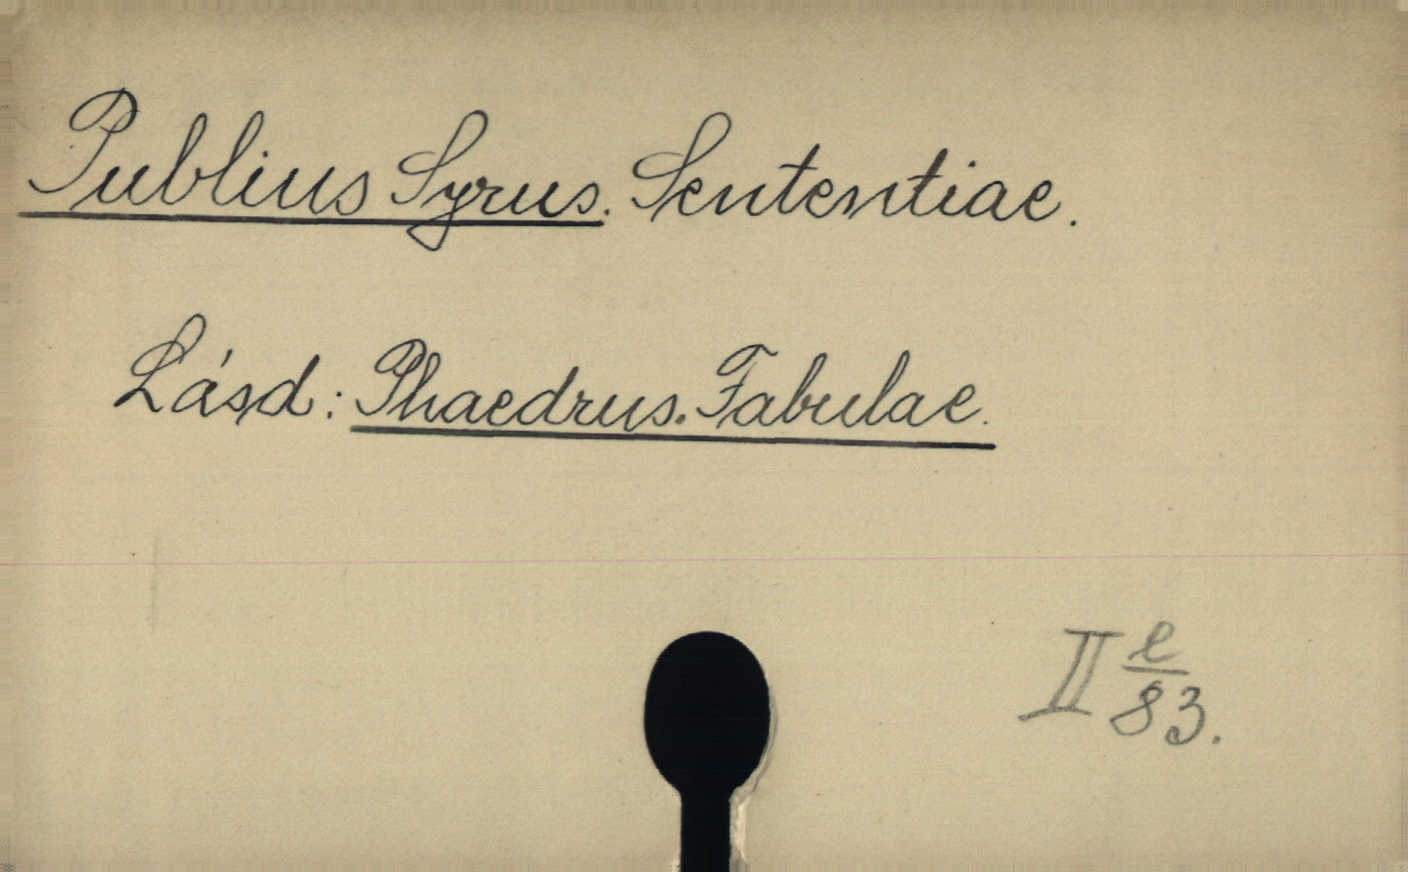 Publius Syrus. Sententiae.
Lásd: Phaedrus. Fabulae.
II e/83.